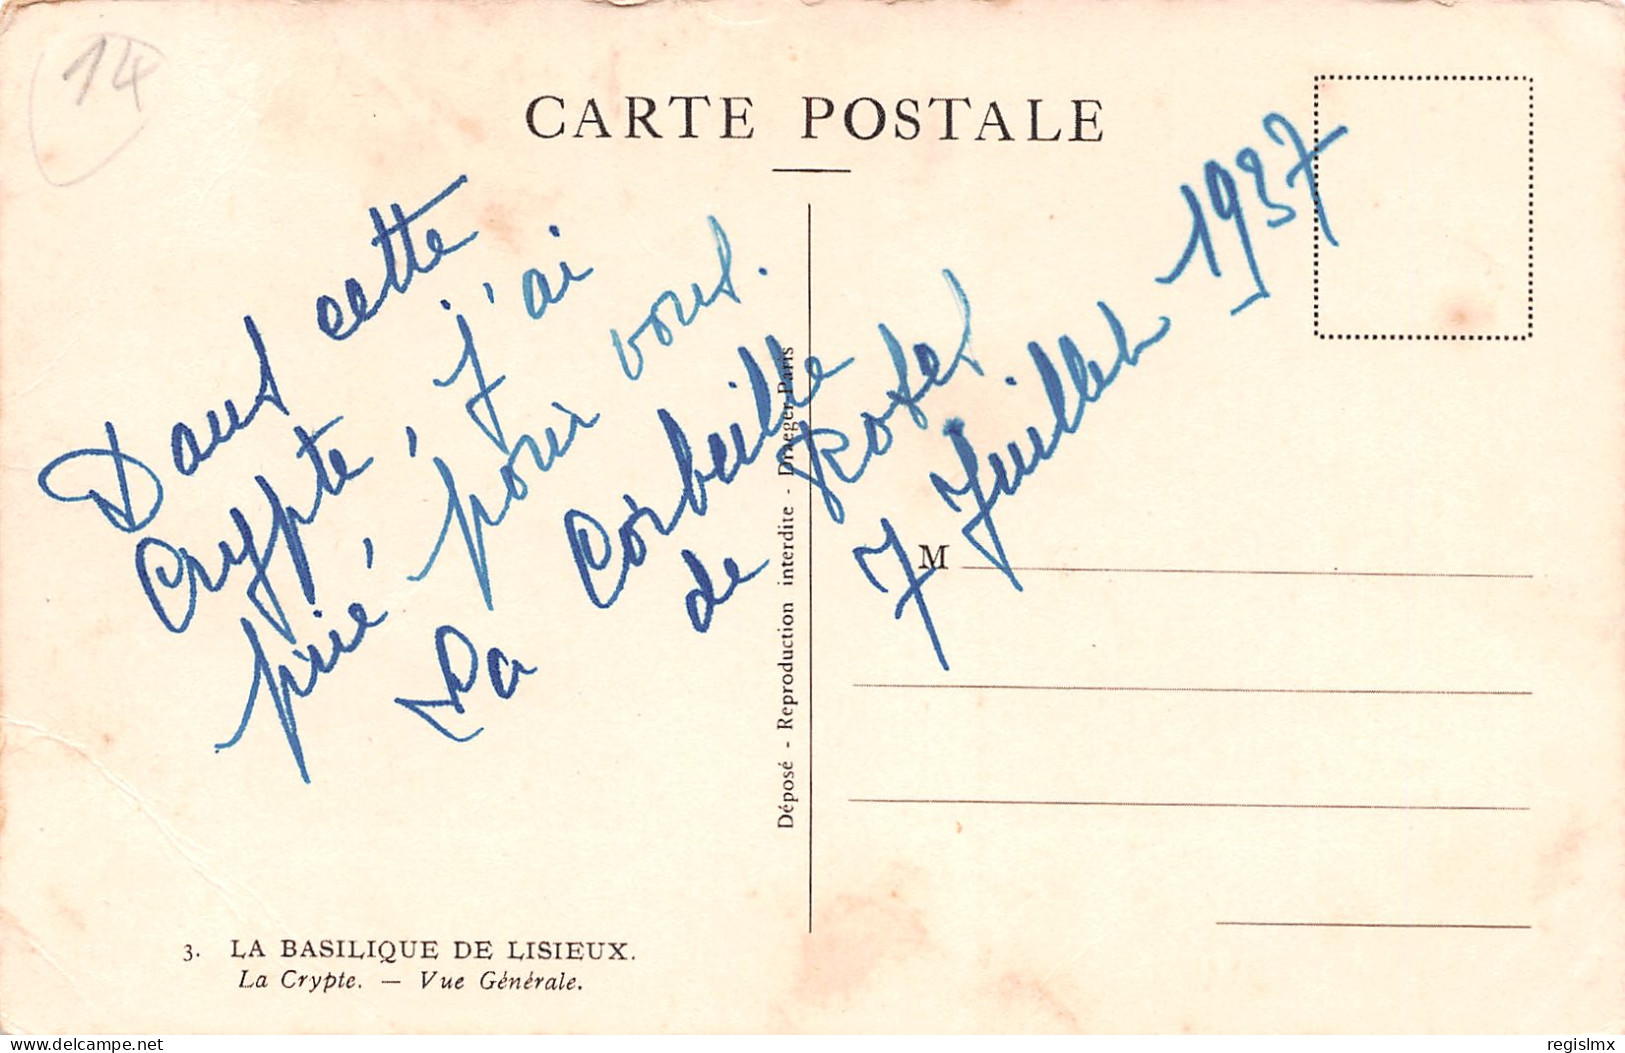 14
CARTE POSTALE
Dans cette
Crypte, j'ai
prié, pour vous.
La Corbeille
de Roses
7 Juillet 1937
M
Déposé - Reproduction interdite - Draeger-Paris
3. LA BASILIQUE DE LISIEUX.
La Crypte. — Vue Générale.
www.delcampe.net
regislmx